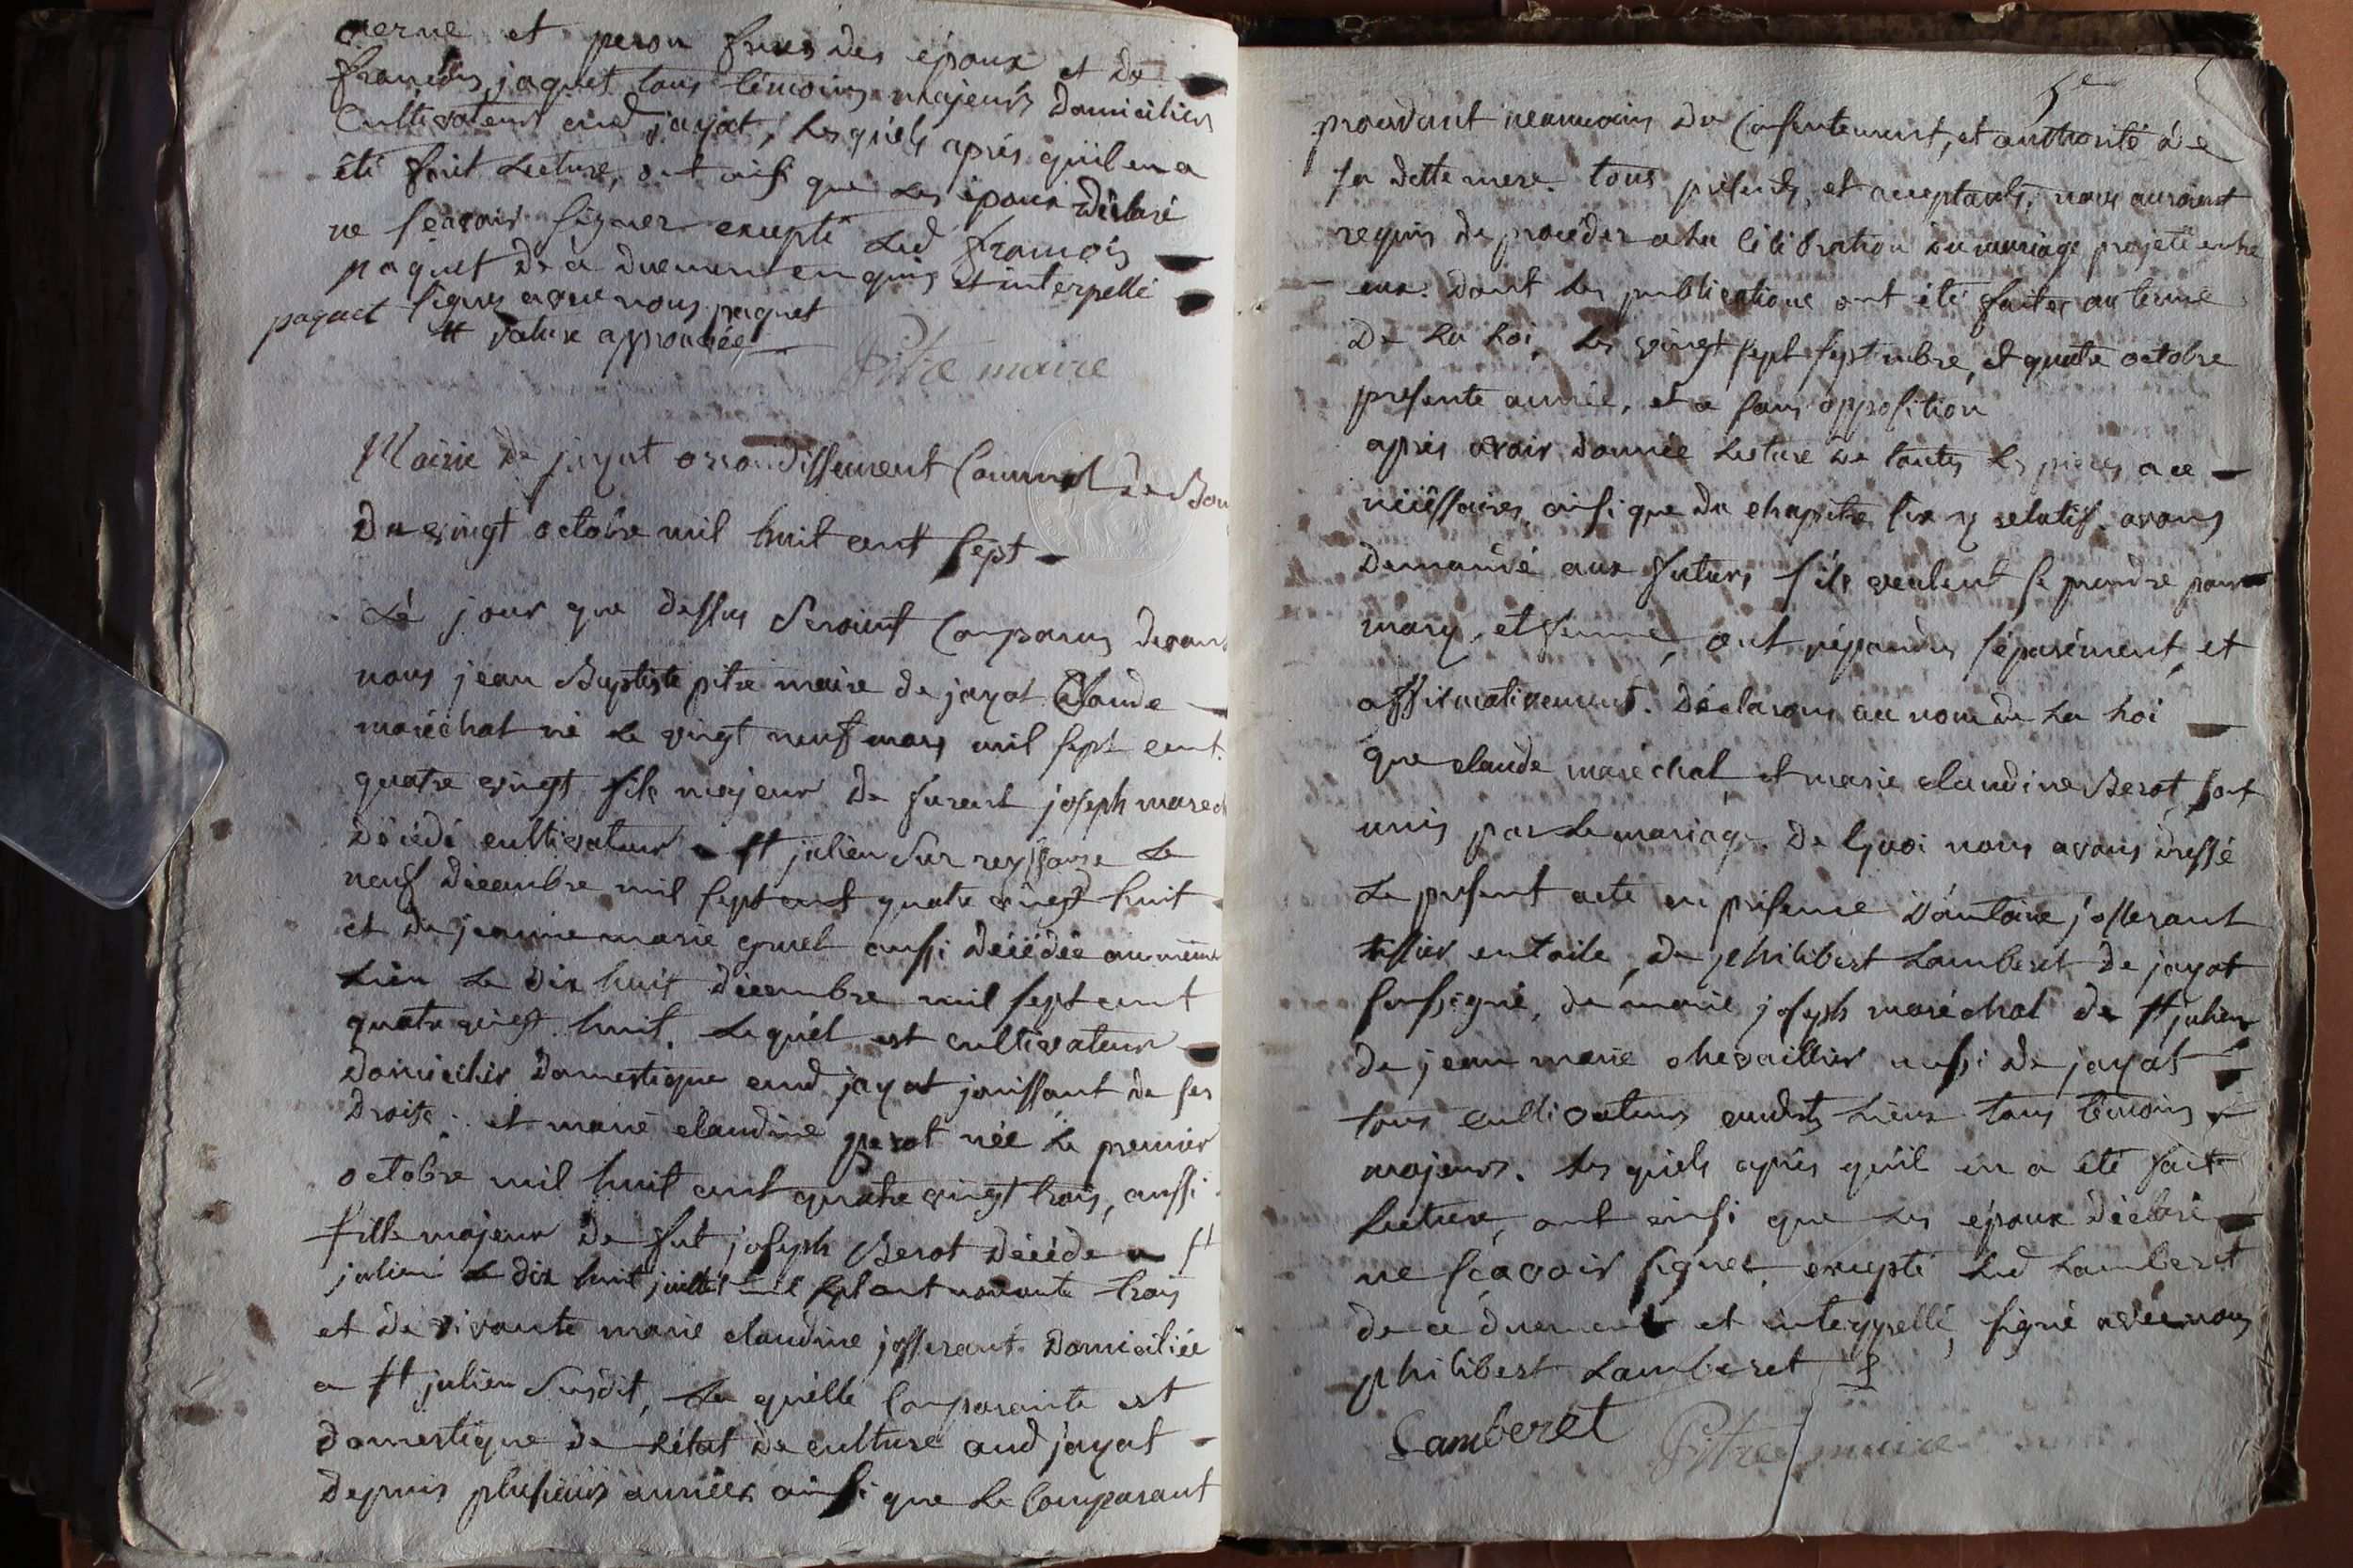 verne et peron freres des époux et de
francois jaquet tous témoins majeurs domiciliés
Cultivateurs aud jayat, lesquels apres qu'il en a
été fait Lecture, ont ainsi que Les époux déclaré
ne sçavoir signer excepté Led francois
paquet de ce duement enquis et interpellé
paquet signé avec nous paquet
rature approuvée
Pitre maire
Mairie de jayat arrondissement Communal de Bou
Du vingt octobre mil huit cent sept
Le jour que dessus Seroient Comparus devant
nous jean Baptiste pitre maire de jayat Claude
maréchal né Le vingt neuf mars mil sept cent
quatre vingt fils majeur de furent joseph marech
décédé cultivateur a st julien Sur reyssouze Le
neuf décembre mil sept cent quatre vingt huit
et de jeanne marie gruel aussi décédée au même
Lieu Le dix huit décembre mil sept cent
quatre vingt huit, Lequel est cultivateur
domicilié domestique aud jayat jouissant de ses
droits. et marie claudine perot née Le premier
octobre mil huit cent quatre vingt trois, aussi
fille majeur de fut joseph Berot décédé a st
julien Le dix huit juillet mil sept cent nonante trois
et de vivante marie claudine josserant domiciliée
a st julien Susdit, La quelle Comparante est
domestique de L'état de culture aud jayat
depuis plusieurs années ainsi que Le Comparant
5e
procédant neanmoins du Consentement, et authorité de
sa dette mere. tous présents, et acceptants, nous auroient
requis de procéder a La Célébration du mariage projeté entre
eux. dont Les publications ont été faites au terme
De La Loi, Les vingt sept septembre, et quatre octobre
présente année, et a sans opposition
après avoir donnée Lecture de toutes Les pieces a ce
nécessaires, ainsi que du chapitre six y relatif. avons
Demandé aux futurs s'ils veulent se prendre pour
mary, et femme, ont répondus séparément, et
affirmativement. Déclarons au nom de La Loi
que claude maréchal et marie claudine Berot sont
unis par Le mariage. De Quoi nous avons dressé
Le présent acte en présence d'antoine josserant
tissier en toile, de philibert Lamberet de jayat
soussigné, de marie joseph maréchal de st julien
de jean marie chevaillier aussi de jayat
tous Cultivateurs audits Lieux tous témoins
majeurs. Les quels après qu'il en a été fait
Lecture, ont ainsi que Les époux déclaré
ne sçavoir signer, excepté Led Lamberet
de ce duement et interppellé, signé avec nous
philibert Lamberet
Lamberet Pitre maire